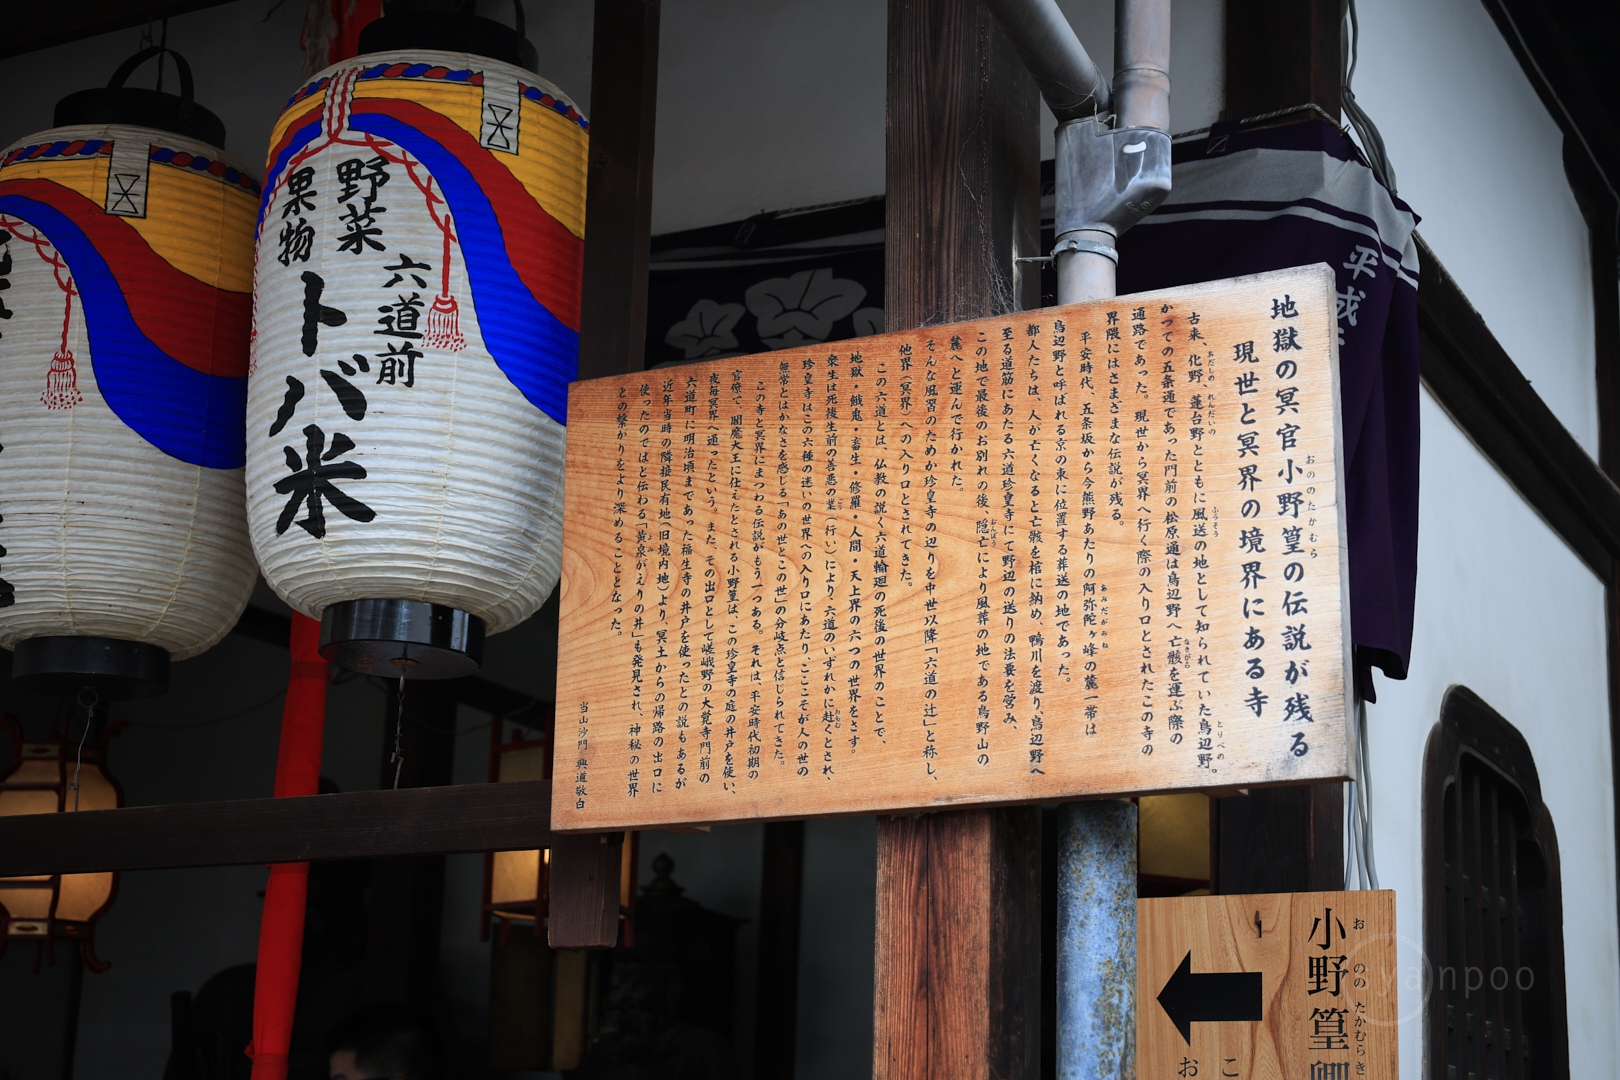 地獄の冥官小野篁の伝説が残る
おののたかむら
現世と冥界の境界にある寺
古来、化野、蓮台野とともに風送の地として知られていた鳥辺野。
あだしの
れんだいの
ふうそう
とりべの
かつての五条通であった門前の松原通は鳥辺野へ亡骸を運ぶ際の
なきがら
通路であった。現世から冥界へ行く際の入り口とされたこの寺の
界隈にはさまざまな伝説が残る。
平安時代、五条坂から今熊野あたりの阿弥陀ヶ峰の麓一帯は
あみだがみね
鳥辺野と呼ばれる京の東に位置する葬送の地であった。
都人たちは、人が亡くなると亡骸を棺に納め、鴨川を渡り、鳥辺野へ
至る道筋にあたる六道珍皇寺にて野辺の送りの法要を営み、
この地で最後のお別れの後、隠亡により風葬の地である鳥野山の
おんぼう
麓へと運んで行かれた。
そんな風習のためか珍皇寺の辺りを中世以降「六道の辻」と称し、
他界（冥界）への入り口とされてきた。
この六道とは、仏教の説く六道輪廻の死後の世界のことで、
地獄・餓鬼・畜生・修羅・人間・天上界の六つの世界をさす。
衆生は死後生前の善悪の業（行い）により、六道のいずれかに赴くとされ、
おもむ
珍皇寺はこの六種の迷いの世界への入り口にあたり、ここそが人の世の
無常とはかなさを感じる「あの世とこの世」の分岐点と信じられてきた。
この寺と冥界にまつわる伝説がもう一つある。それは、平安時代初期の
官僚で、閻魔大王に仕えたとされる小野篁は、この珍皇寺の庭の井戸を使い、
夜毎冥界へ通ったという。また、その出口として嵯峨野の大覚寺門前の
六道町に明治頃まであった福生寺の井戸を使ったとの説もあるが
近年当時の隣接民有地（旧境内地）より、冥土からの帰路の出口に
使ったのではと伝わる「黄泉がえりの井」も発見され、神秘の世界
よみ
との繋がりをより深めることとなった。
当山沙門 興道敬白
六道前
野菜
果物
トバ米
平成
小野篁卿
お のの たかむら き
こ
お
yanpoo